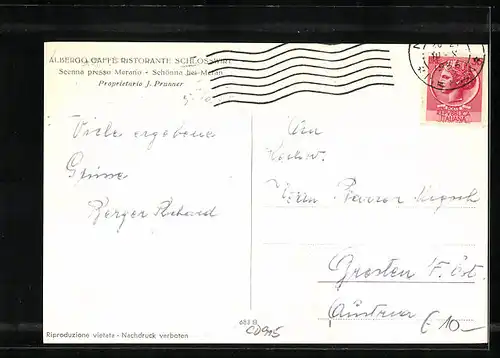 ALBERGO CAFFÉ RISTORANTE SCHLOSSWIRT
Scenna presso Merano - Schönna bei Meran
Proprietario J. Prunner
Viele ergebene
Grüsse
Berger Richard
An
Hochw.
Herrn Pfarrer
Gresten N. Öst.
Austria
Riproduzione vietata - Nachdruck verboten
CD915
€ 10-